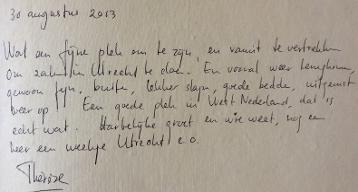 30 augustus 2013
Wat een fijne plek om te zijn, en vanuit te vertrekken
Om zaken in Utrecht te doen. En vooral weer terugkomen,
gewoon fijn, buiten, lekker slapen, goede bedden, uitgerust
weer op. Een goede plek in West Nederland, dat is
echt wat. Hartelijke groet en wie weet, nog een
keer een weekje Utrecht e.o.
Therèse